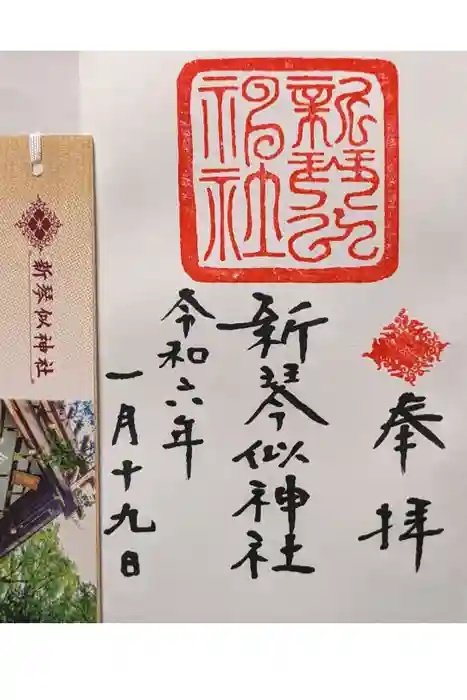 奉拝
新琴似神社
令和六年
一月十九日
新琴似
神社
新琴似神社